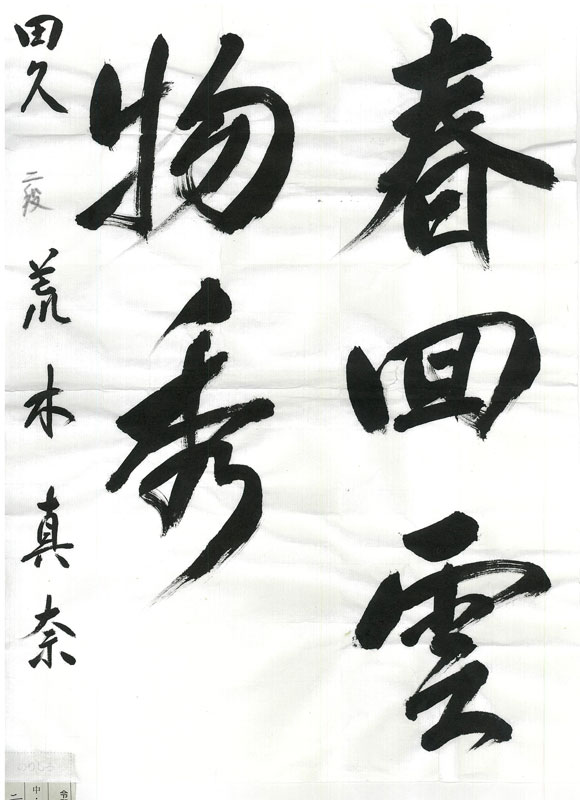 春回雲
物秀
田久 二段 荒木真奈